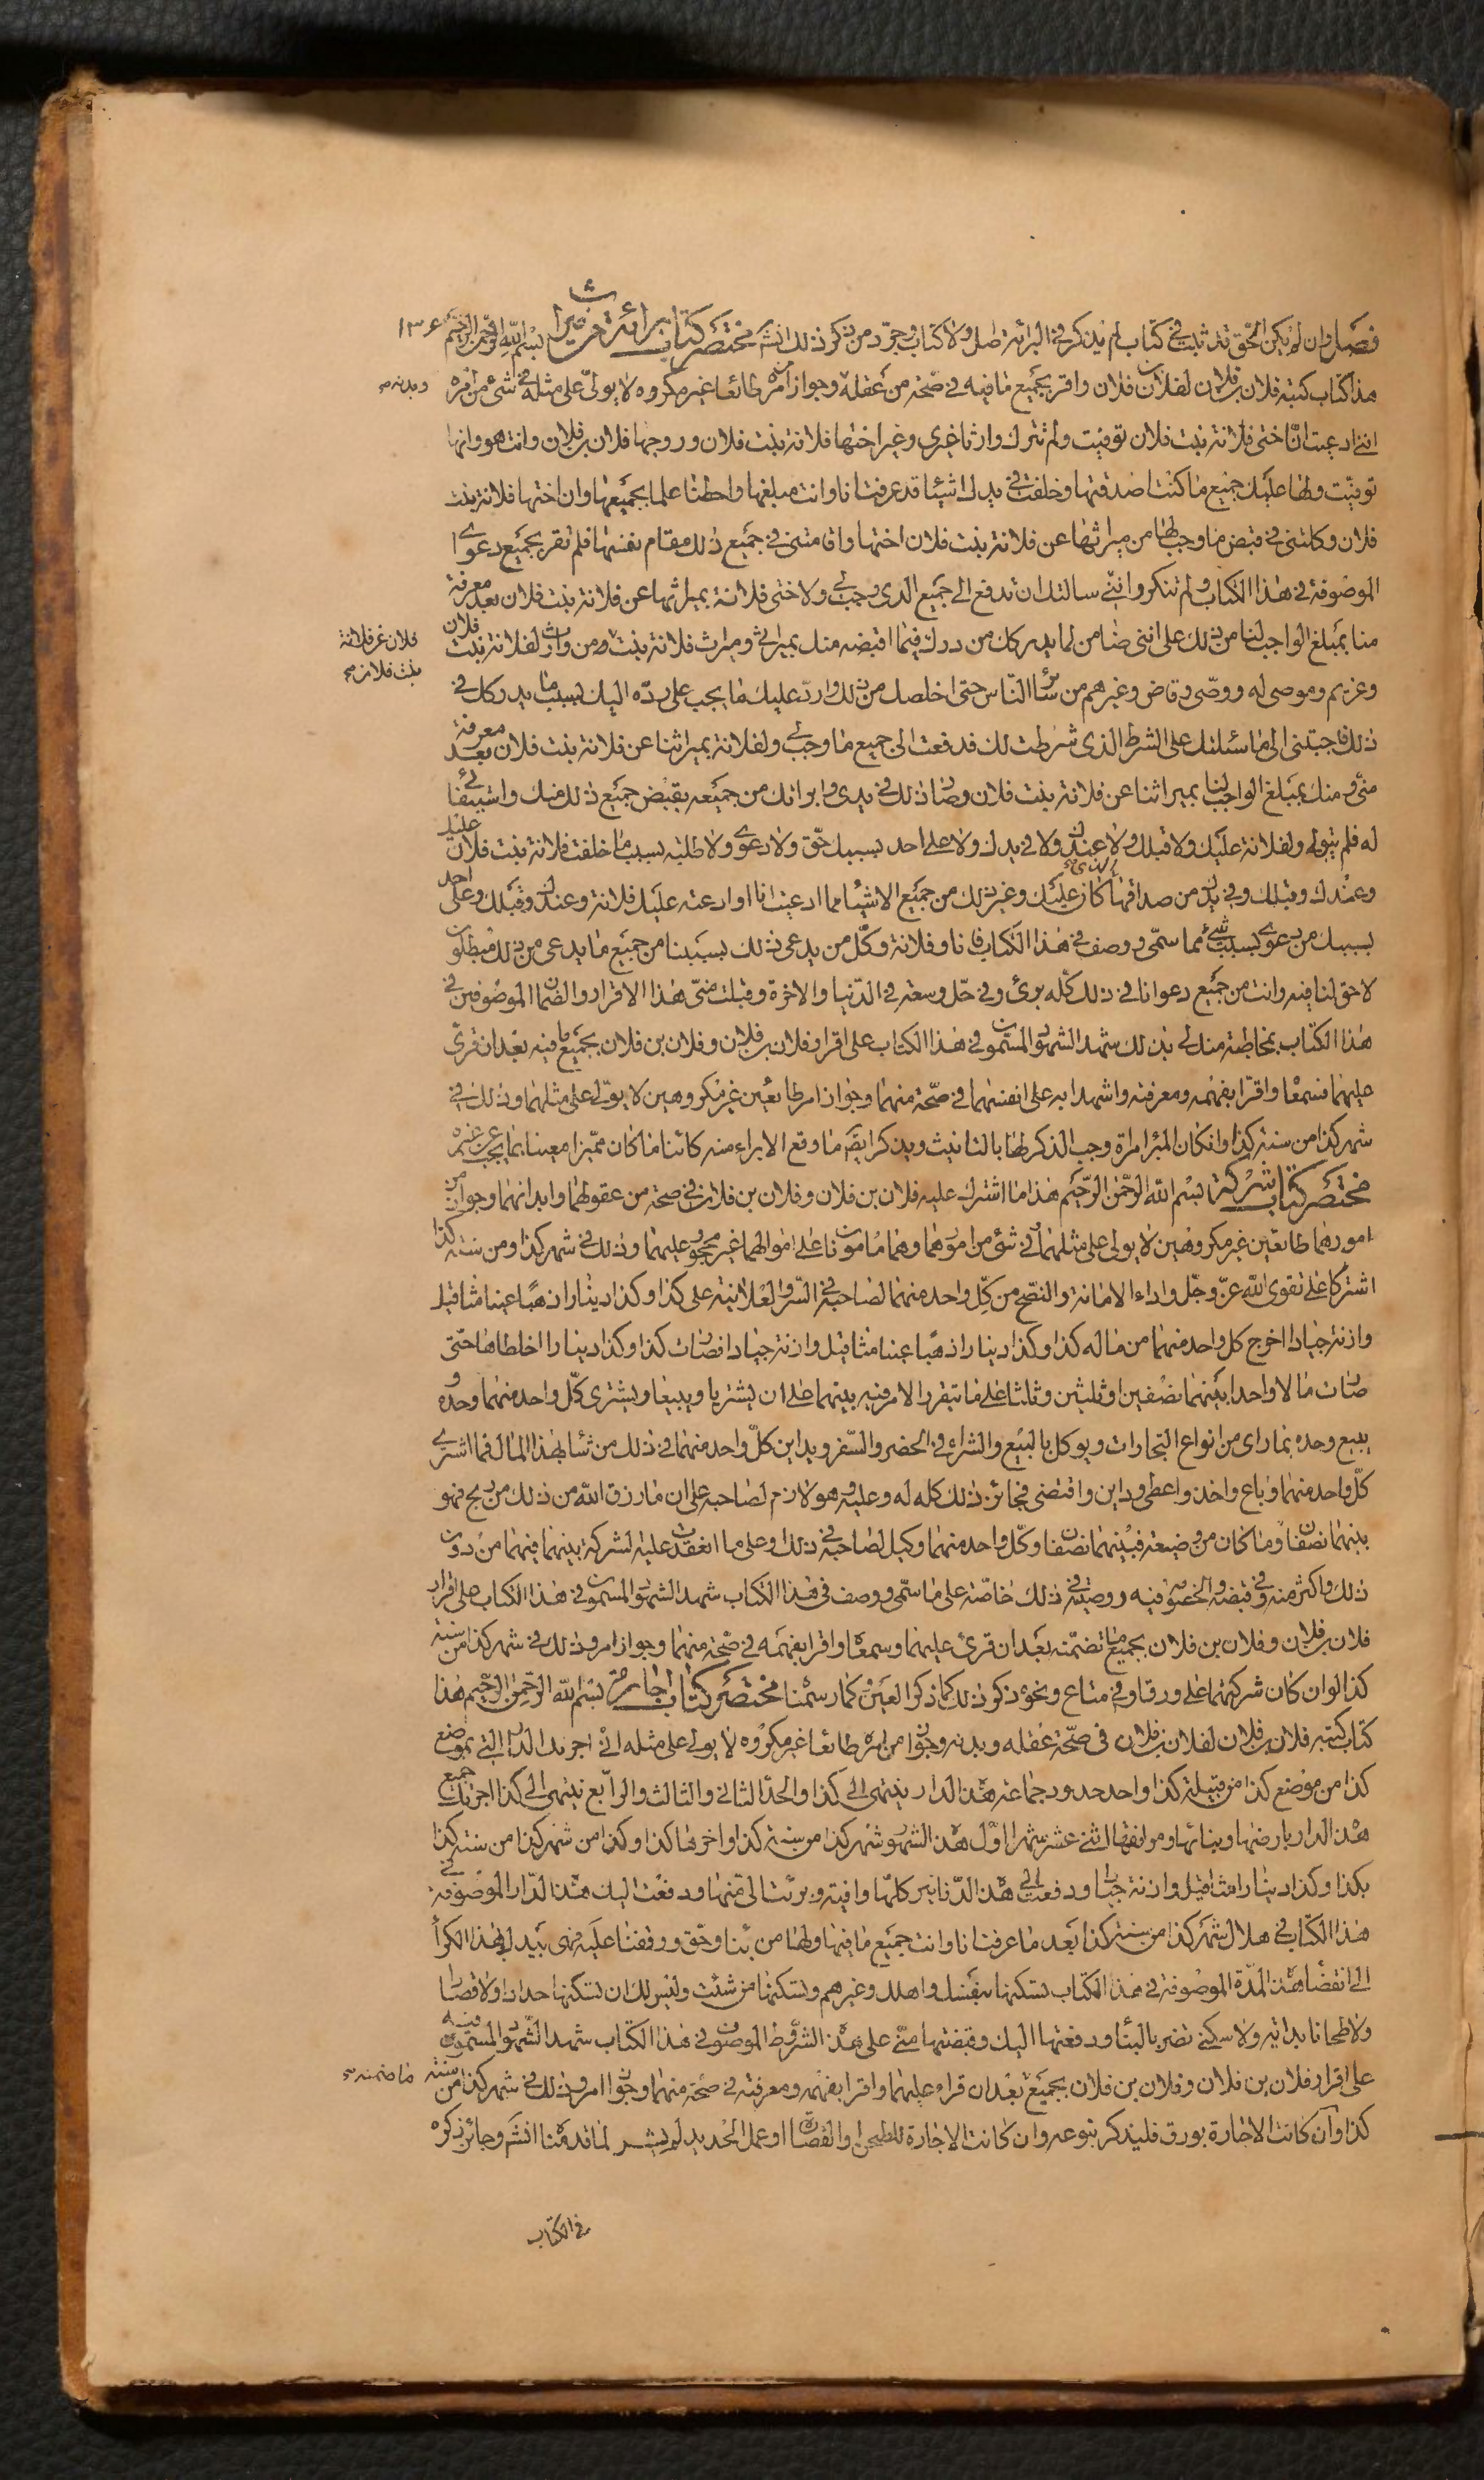 فصل وان لم يكن الحق قد ثبت في كتاب لم يذكر في البرائة اصل ولا كتاب وجرد من ذكر ذلك انشم مختصر كتاب برائة من ميراث بسم الله الرحمن الرحيم ١٣٤
هذا كتاب كتبه فلان بن فلان لفلان بن فلان واقر بجميع ما فيه في صحة من عقله وجواز امره طائعا غير مكروه لا يولى على مثله في شىء من امره وبدنه صح
انني ادعيت ان اختى فلانة بنت فلان توفيت ولم تترك وارثا غيرى وغير اختها فلانة بنت فلان وزوجها فلان بن فلان وانت هو وانها
توفيت ولها عليك جميع ما كنت اصدقتها وخلفت في يدك اشيئا قد عرفت انا وانت مبلغها واحطنا علما بجميعها وان اختها فلانة بنت
فلان وكلتنى في قبض ما وجب لها من ميراثها عن فلانة بنت فلان اختها واقامتنى في جميع ذلك مقام نفسها فلم تقر بجميع دعوى
الموصوفة في هذا الكتاب ولم تنكر وانني سالتك ان تدفع الي جميع الذى وجب لي ولاختى فلانة بميراثها عن فلانة بنت فلان بعد معرفة
منا بمبلغ الواجب لنا من ذلك على اننى ضامن لما يدركك من درك فيما اقبضه منك بميراثي وميراث فلانة بنت فلان من وارث لفلانة بنت فلان فلان غير فلانة بنت فلان صح
وغريم وموصى له ووصى وقاض وغيرهم من سائر الناس حتى اخلصك من ذلك وارد عليك ما يجب على رده اليك بسبب ما يدركك في
ذلك فاجبتنى الى ما سئلتك على الشرط الذى شرطت لك فدفعت الى جميع ما وجب لي ولفلانة بميراثنا عن فلانة بنت فلان بعد معرفة
منى ومنك بمبلغ الواجب لنا بميراثنا عن فلانة بنت فلان وصار ذلك في يدى وابراتك من جميعه بقبض جميع ذلك منك واستيفائى
له فلم يبق لي ولفلانة عليك ولا قبلك ولا عندك ولا في يدك ولا على احد بسببك حق ولا دعوى ولا طلبه بسبب ما خلفت فلانة بنت فلان عليك
وعندك وقبلك وفي يدك من صداقها الذى كان عليك وغير ذلك من جميع الاشياء مما ادعيت انا او ادعته عليك فلانة وعندك وقبلك وعلى احد
بسببك من دعوى بسبب شئ مما سمى ووصف في هذا الكتاب فانا وفلانة وكل من يدعى ذلك بسببنا من جميع ما يدعى من ذلك مبطلون
لا حق لنا فيه وانت من جميع دعوانا في ذلك كله برئ وفي حل وسعة في الدنيا والاخرة وقبلت منى هذا الاقرار والضمان الموصوفين في
هذا الكتاب بمخاطبة منك لي بذلك شهد الشهود المسمون في هذا الكتاب على اقرار فلان بن فلان وفلان بن فلان بجميع ما فيه بعد ان قرئ
عليهما فسمعا واقرا بفهمه ومعرفته واشهدا به على انفسهما في صحة منهما وجواز امر طايعين غير مكروهين لا يولى على مثلهما وذلك في
شهر كذا من سنة كذا وان كان المبرا امراة وجب الذكر لها بالتانيث ويذكر ايضا ما وقع الابراء منه كائنا ما كان مميزا معينا بما يجب عن غيره
مختصر كتاب شركة بسم الله الرحمن الرحيم هذا ما اشترك عليه فلان بن فلان وفلان بن فلان في صحة من عقولهما وابدانهما وجواز من
امورهما طايعين غير مكروهين لا يولى على مثلهما في شئ من امورهما وهما مامونان على اموالهما غير محجور عليهما وذلك في شهر كذا ومن سنة كذا
اشتركا على تقوى الله عز وجل واداء الامانة والنصح من كل واحد منهما لصاحبه في السر والعلانية على كذا وكذا دينارا ذهبا عينا مثاقيل
وازنة جيادا اخرج كل واحد منهما من ماله كذا وكذا دينارا ذهبا عينا مثاقيل وازنة جيادا فصارت كذا وكذا دينارا اخلطاها حتى
صارت مالا واحدا بينهما نصفين او ثلثين وثلثا على ما تيقرر الامر فيه بينهما على ان يشتريا ويبيعا ويشترى كل واحد منهما وحده و
يبيع وحده بما راى من انواع التجارات ويوكل بالبيع والشراء في الحضر والسفر ويداين كل واحد منهما في ذلك من شاء بهذا المال فما اشترى
كل واحد منهما وباع واخذ واعطى وداين واقتضى فجائز ذلك كله له وعليه وهو لازم لصاحبه على ان ما رزق الله من ذلك من ربح فهو
بينهما نصفان وما كان من وضيعة فبينهما نصفان وكل واحد منهما وكيل لصاحبه في ذلك وعلى ما انعقدت عليه لشركة بينهما فيهما من دون
ذلك واكثر منه وفي قبضه والخصومة فيه ووصيته في ذلك خاصة على ما سمى ووصف فى هذا الكتاب شهد الشهود المسمون في هذا الكتاب على اقرار
فلان بن فلان وفلان بن فلان بجميع ما تضمنه بعد ان قرئ عليهما وسمعاه واقرا بفهمه في صحة منهما وجواز امر وذلك في شهر كذا من سنة
كذا لوان كان شركتهما على ورق او في متاع ونحوه ذكر ذلك كما ذكر العين وكما رسمنا مختصر كتاب اجارة بسم الله الرحمن الرحيم هذا
كتاب كتبه فلان بن فلان لفلان بن فلان فى صحة عقله وبدنه وجواز من امره طائعا غير مكروه لا يولى على مثله انى اجرتك الدار التي بموضع
كذا من موضع كذا من قبيلة كذا واحد حدود جماعة هذه الدار ينتهى الى كذا والحد الثاني والثالث والرابع ينتهى الى كذا اجرتك جميع
هذه الدار بارضها وبنائها ومرافقها اثنى عشر شهرا اول هذه الشهور شهر كذا من سنة كذا واخرها كذا وكذا من شهر كذا من سنة كذا
بكذا وكذا دينارا مثاقيل وازنة جيادا ودفعت الي هذه الدنانير كلها وافية وبرئت الى منها ودفعت اليك هذه الدار الموصوفة في
هذا الكتاب في هلال شهر كذا من سنة كذا بعد ما عرفت انا وانت جميع ما فيها ولها من بناء وحق ووقفنا عليه فهى بيدك بهذا الكراء
الى انقضاء هذه المدة الموصوفة في هذا الكتاب تسكنها بنفسك واهلك وغيرهم وتسكنها من شئت وليس لك ان تسكنها حدادا ولا قصارا
ولا طحانا بدابة ولا سكنى تضر بالبناء ودفعتها اليك وقبضتها منى على هذه الشروط الموصوفة في هذا الكتاب شهد الشهود المسمون فيه
على اقرار فلان بن فلان وفلان بن فلان بجميع بعد ان قراه عليهما واقرا بفهمه ومعرفته في صحة منهما وجواز امر وذلك في شهر كذا من سنة ما ضمنه صح
كذا وان كانت الاجارة بورق فليذكر بنوعه وان كانت الاجارة للطحن والقصارة او عمل الحديد لما قدمنا انشم وجائز ذكره
في الكتاب